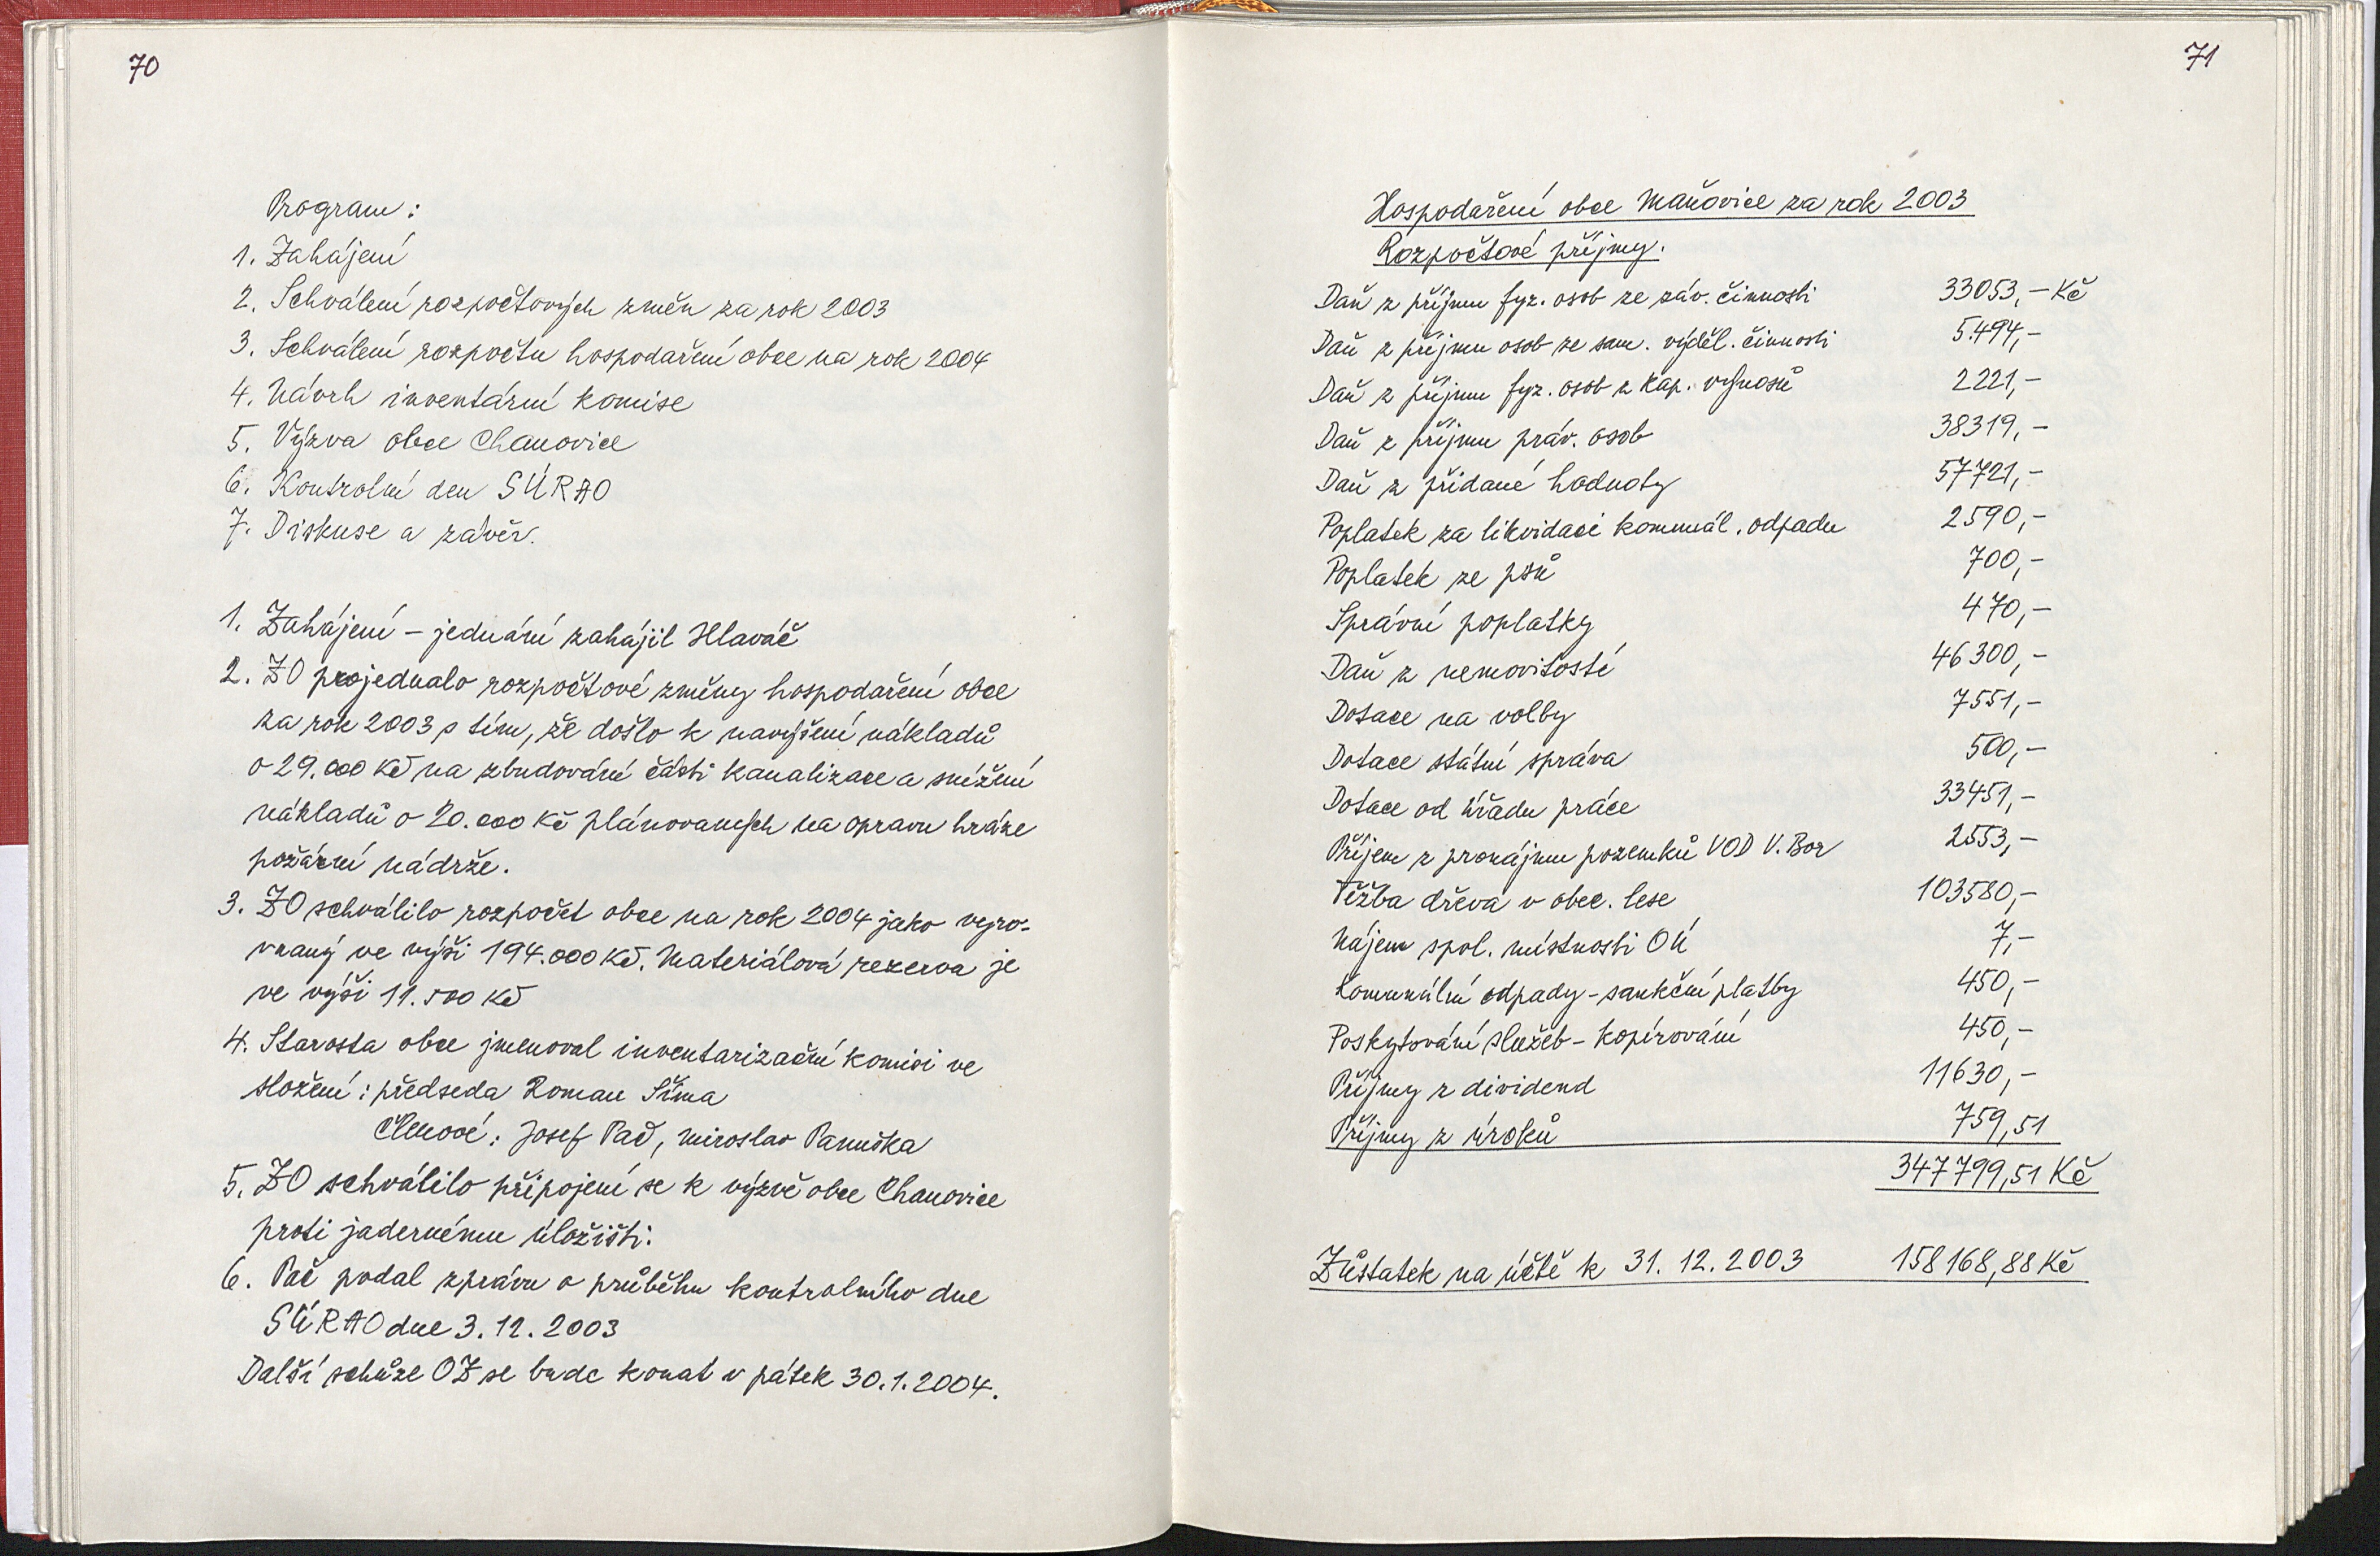 70
Program:
1. Zahájení
2. Schválení rozpočtových změn za rok 2003
3. Schválení rozpočtu hospodaření obce na rok 2004
4. Návrh inventární komise
5. Výzva obce Chanovice
6. Kontrolní den SÚRAO
7. Diskuse a závěr.
1. Zahájení – jednání zahájil Hlaváč
2. ZO projednalo rozpočtové změny hospodaření obce
za rok 2003 s tím, že došlo k navýšení nákladů
o 29.000 Kč na zbudování části kanalizace a snížení
nákladů o 20.000 Kč plánovaných na opravu hráze
požární nádrže.
3. ZO schválilo rozpočet obce na rok 2004 jako vyro-
vnaný ve výši 194.000 Kč. Materiálová rezerva je
ve výši 11.500 Kč
4. Starosta obce jmenoval inventarizační komisi ve
složení: předseda Roman Šíma
Členové: Josef Pač, Miroslav Panuška
5. ZO schválilo připojení se k výzvě obce Chanovice
proti jadernému úložišti.
6. Pač podal zprávu o průběhu kontrolního dne
SÚRAO dne 3.12.2003
Další schůze OZ se bude konat v pátek 30.1.2004.
71
Hospodaření obce Maňovice za rok 2003
Rozpočtové příjmy.
Daň z příjmu fyz. osob ze záv. činnosti 33053,- Kč
Daň z příjmu osob ze sam. výděl. činnosti 5.494,-
Daň z příjmu fyz. osob z kap. výnosů 2221,-
Daň z příjmu práv. osob 38319,-
Daň z přidané hodnoty 57721,-
Poplatek za likvidaci komunál. odpadu 2590,-
Poplatek ze psů 700,-
Správní poplatky 470,-
Daň z nemovitostí 46300,-
Dotace na volby 7551,-
Dotace státní správa 500,-
Dotace od úřadu práce 33451,-
Příjem z pronájmu pozemků VOD V. Bor 2553,-
Těžba dřeva v obec. lese 103580,-
Nájem spol. místnosti OÚ 7,-
Komunální odpady - sankční platby 450,-
Poskytování služeb - kopírování 450,-
Příjmy z dividend 11630,-
Příjmy z úroků 759,51
347799,51 Kč
Zůstatek na účtě k 31. 12. 2003 158168,88 Kč